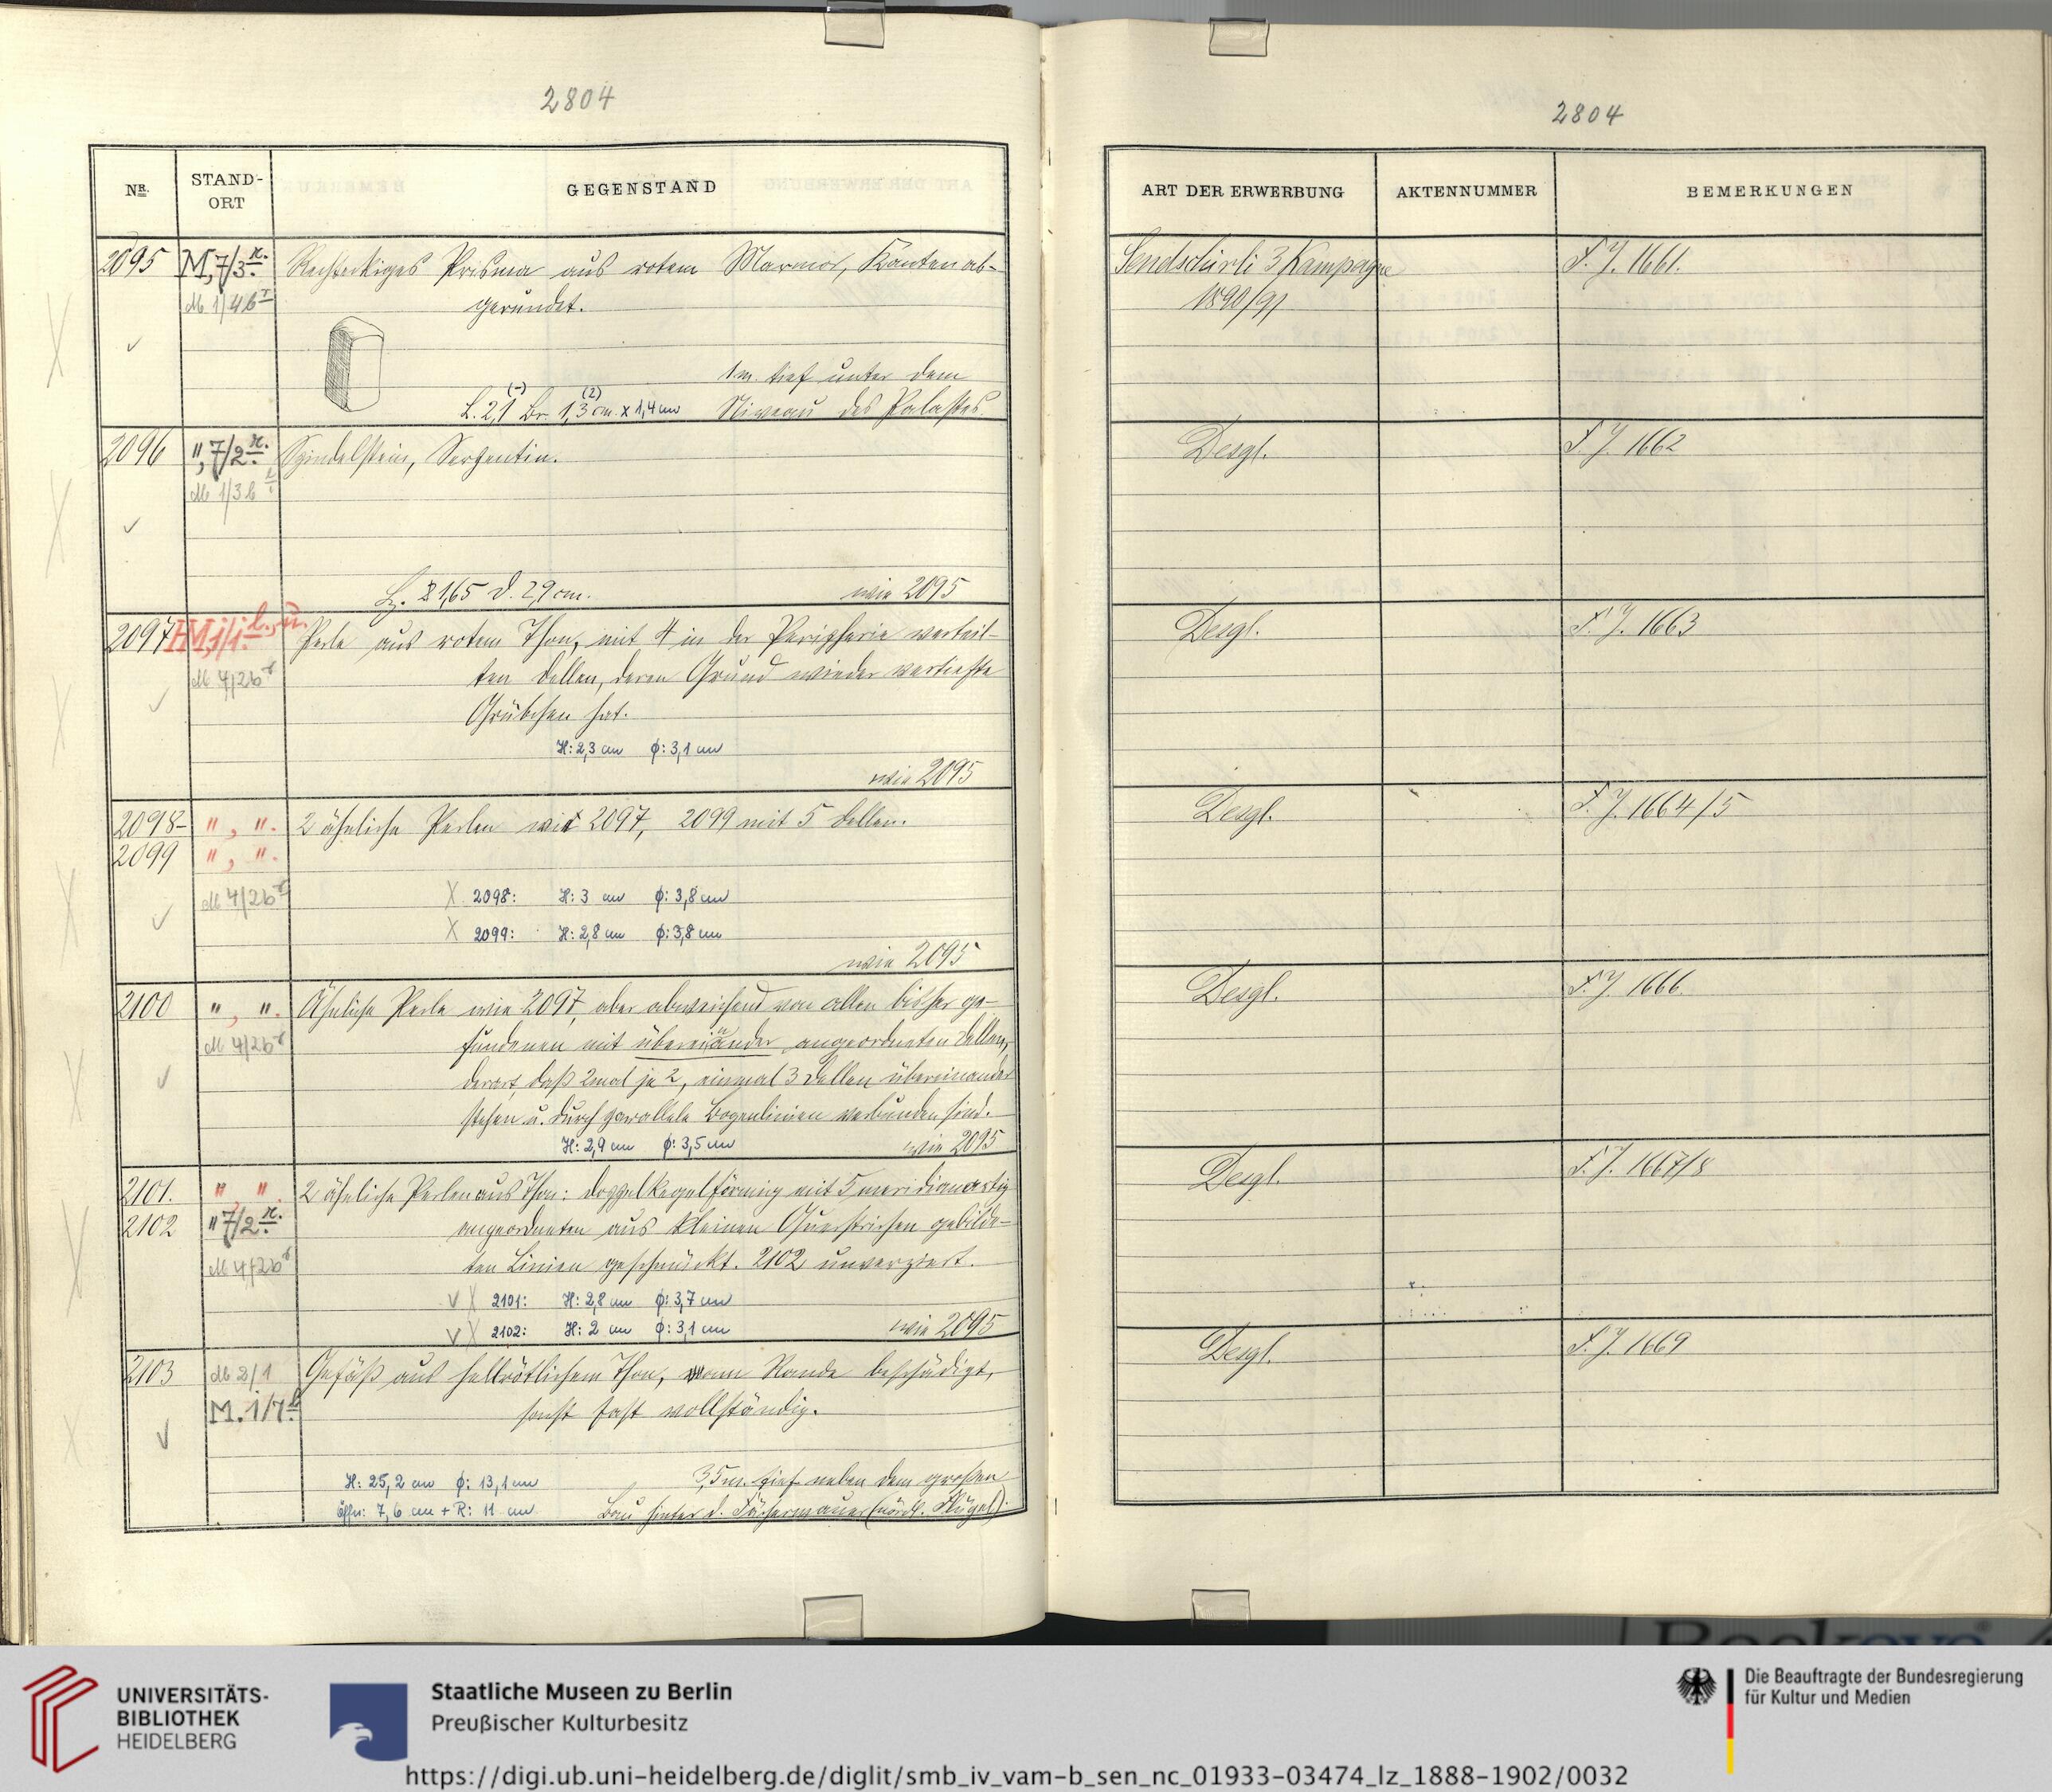 2804
Nr. STAND-ORT GEGENSTAND
2095 M,7/3 r. Rechteckiges Prisma aus rotem Marmor, Kanten ab-
M 1/4 b gerundet.
1 m. tief unter dem
L. 2,1 (-) Br. 1,3 (2) cm. x 1,4 cm Niveau des Palastes.
2096 ", 7/2 r. Spindelstein, Serpentin.
M 1/3 b
1,65 d. 2,9 cm. wie 2095
2097 Perle aus rotem Thon, mit 4 in der Peripherie verteil-
M 4/2b ten Dellen, deren Grund wieder vertiefte
Grübchen hat.
H: 2,3 cm ϕ: 3,1 cm
wie 2095
2098- ", ". 2 ähnliche Perlen wie 2097, 2099 mit 5 Dellen.
2099 ", ".
M 4/2b X 2098: H: 3 cm ϕ: 3,8 cm
X 2099: H: 2,8 cm ϕ: 3,8 cm
wie 2095
2100 ", ". Ähnliche Perle wie 2097, aber abweichend von allen bisher ge-
M 4/2b fundenen mit übereinander angeordneten Dellen,
derart, daß 2mal je 2, einmal 3 Dellen übereinander
stehen u. durch parallele Bogenlinien verbunden sind.
H: 2,9 cm ϕ: 3,5 cm wie 2095
2101. ", ". 2 ähnliche Perlen aus Thon: doppelkegelförmig mit 5 meridianartig
2102 " 7/2 r. angeordneten aus kleinen Querstrichen gebilde-
M 4/2b ten Linien geschmückt. 2102 unverziert.
✓ X 2101: H: 2,8 cm ϕ: 3,7 cm
✓ X 2102: H: 2 cm ϕ: 3,1 cm wie 2095
2103 M 2/1 Gefäß aus hellrötlichem Thon, am Rande beschädigt,
M. 1/7 sonst fast vollständig.
H: 25,2 cm ϕ: 13,1 cm 3,5 m. tief neben dem großen
Öffn: 7,6 cm + R: 11 cm Bau hinter d. Fächermauer (nördl. Flügel).
2804
ART DER ERWERBUNG AKTENNUMMER BEMERKUNGEN
Sendschirli 3 Kampagne F. J. 1661.
1890/91
Desgl. F. J. 1662
Desgl. F. J. 1663
Desgl. F. J. 1664/5
Desgl. F. J. 1666.
Desgl. F. J. 1667/8
Desgl. F. J. 1669
UNIVERSITÄTS-
BIBLIOTHEK
HEIDELBERG
Staatliche Museen zu Berlin
Preußischer Kulturbesitz
Die Beauftragte der Bundesregierung
für Kultur und Medien
https://digi.ub.uni-heidelberg.de/diglit/smb_iv_vam-b_sen_nc_01933-03474_lz_1888-1902/0032